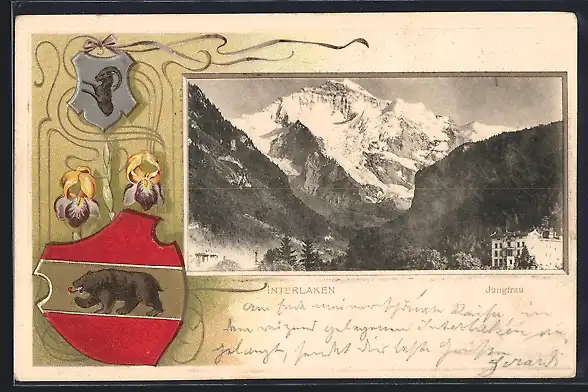 INTERLAKEN
Jungfrau
Am Ende meiner schönen Reise, in
dem reizend gelegenen Interlaken an-
gelangt, sendet Dir beste Grüße